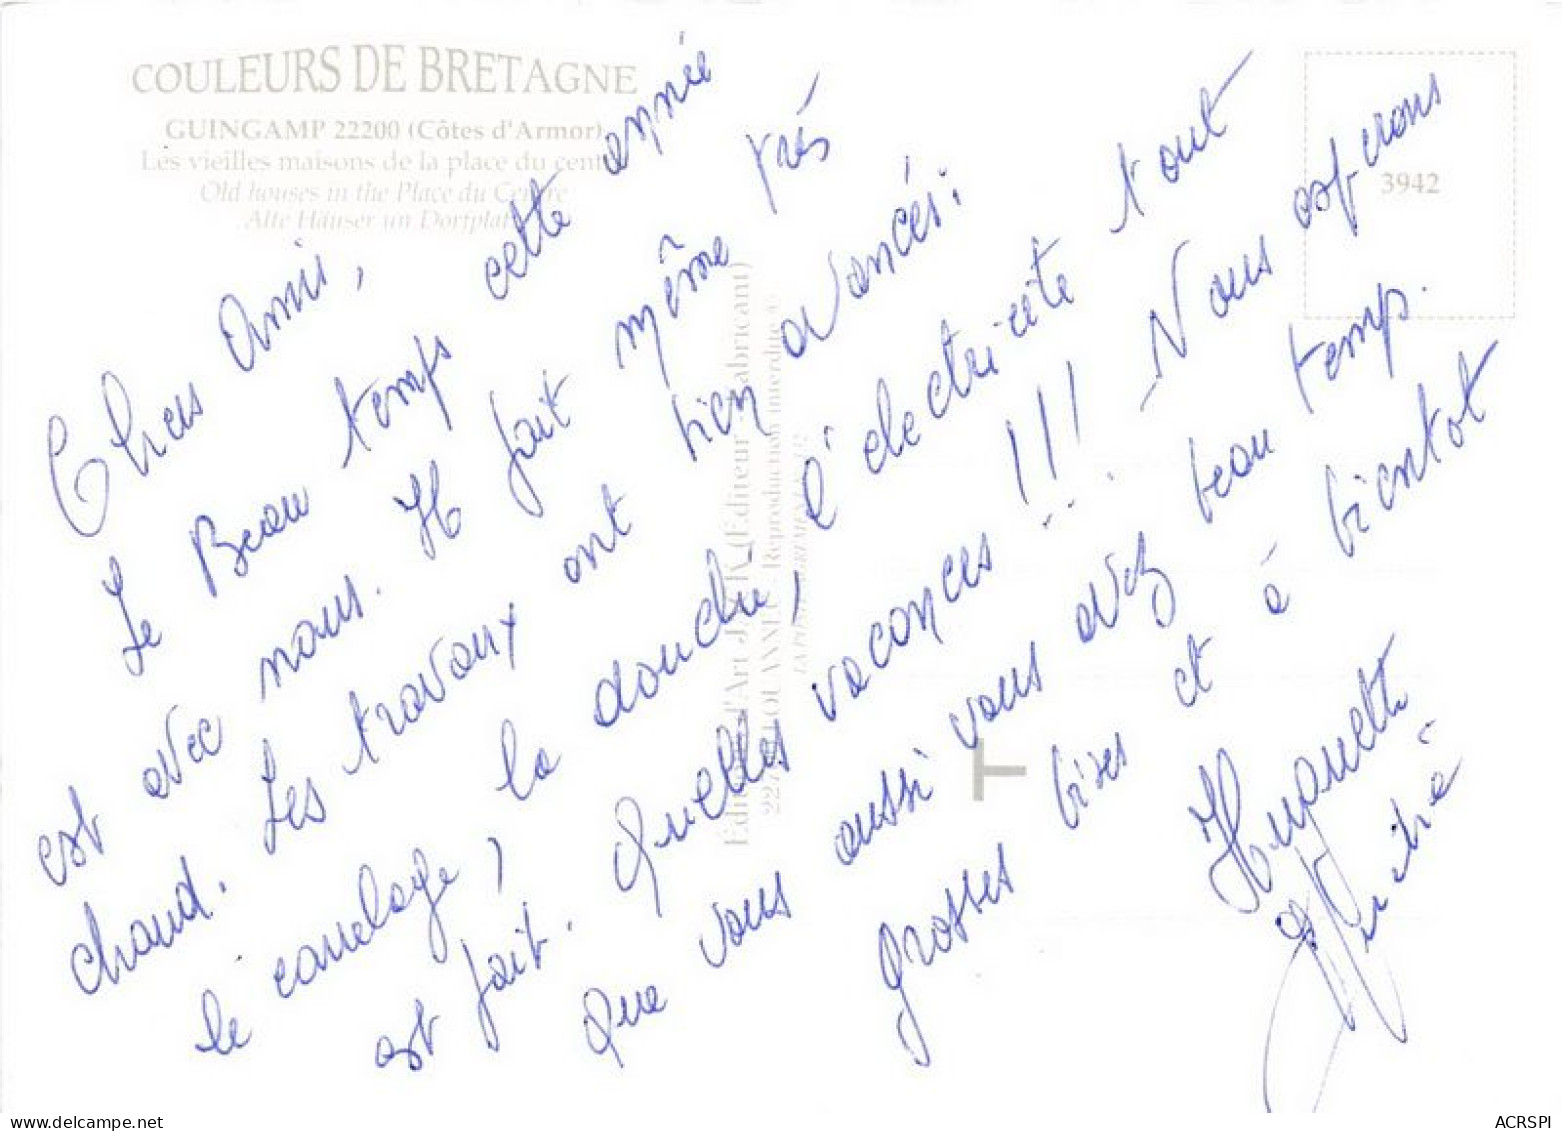 COULEURS DE BRETAGNE
GUINGAMP 22200 (Côtes d'Armor)
Les vieilles maisons de la place du centre
Old houses in the Place du Centre
Alte Häuser un Dorfplatz
3942
Chers Amis,
Le Beau temps cette année
est avec nous. Il fait même très
chaud. Les travaux ont bien avancés :
le carrelage, la douche, l'électricité tout
est fait. Quelles vacances !!! Nous espérons
que vous aussi vous avez beau temps.
grosses bises et à bientot
Huguette
Éditions d'Art JACK (Editeur - Fabricant)
LOUANNEC - Reproduction interdite ©
ACRSPI